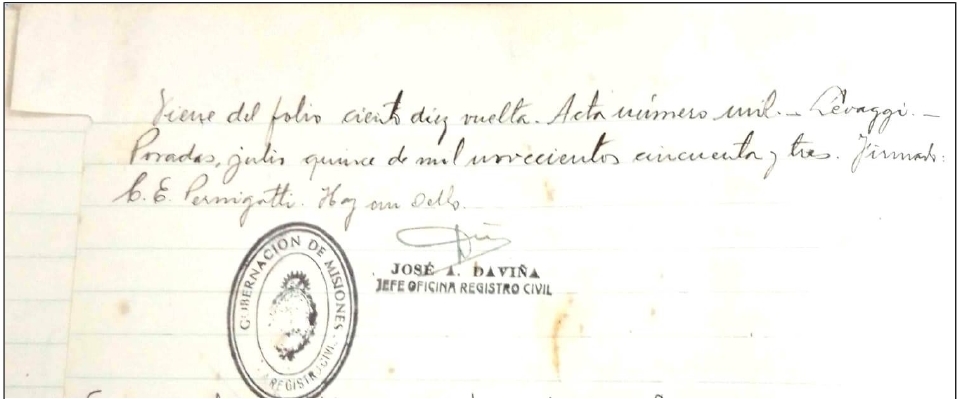 Viene del folio ciento diez vuelta. Acta número mil. — Lévaggi. —
Posadas, julio quince de mil novecientos cincuenta y tres. Firmado:
C. E. Pernigotti. Hay un sello.
GOBERNACION DE MISIONES
REGISTRO CIVIL
JOSÉ A. DAVIÑA
JEFE OFICINA REGISTRO CIVIL